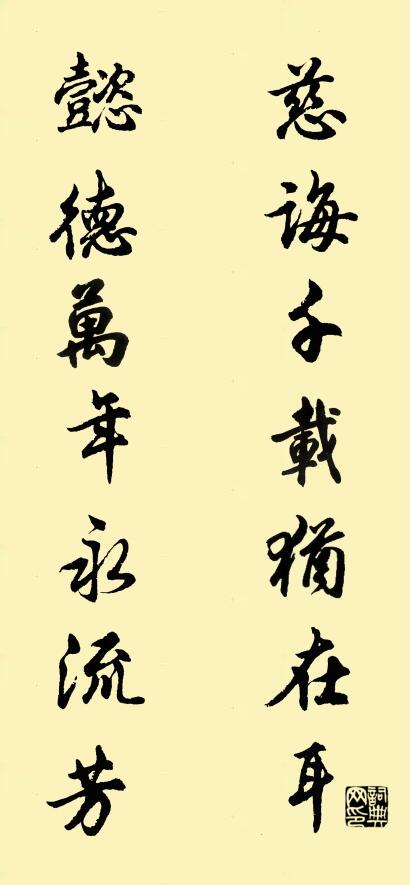 慈誨千載猶在耳
懿德萬年永流芳
詞典网印